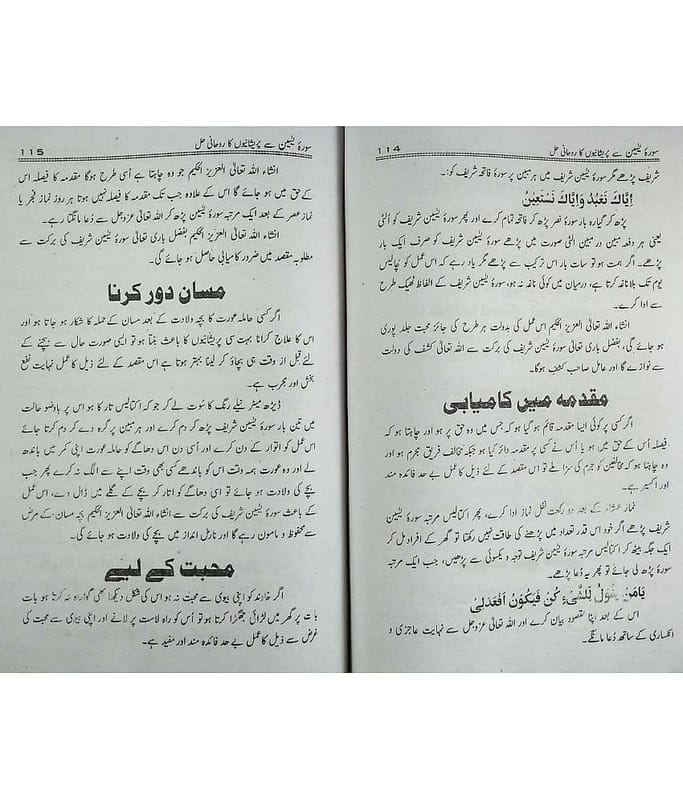 114 سورۂ یٰسین سے پریشانیوں کا روحانی حل
شریف پڑھے مگر سورۂ یٰسین شریف میں ہر مبین پر سورۂ فاتحہ شریف کو:۔
اِیَّاكَ نَعْبُدُ وَاِیَّاكَ نَسْتَعِیْنُ
پڑھ کر گیارہ بار سورۂ نصر پڑھ کر فاتحہ تمام کرے اور پھر سورۂ یٰسین شریف کو اُلٹی
یعنی ہر دفعہ مبین در مبین الٹی صورت میں پڑھے سورۂ یٰسین شریف کو صرف ایک بار
پڑھے۔ اگر ہمت ہو تو سات بار اس ترکیب سے پڑھے مگر یاد رہے کہ اس عمل کو چالیس
یوم تک بلاناغہ کرتا ہے، درمیان میں کوئی ناغہ نہ ہو، سورۂ یٰسین شریف کے الفاظ ٹھیک طرح
سے ادا کرے۔
انشاء اللہ تعالیٰ العزیز الحکیم اس عمل کی بدولت ہر طرح کی جائز محبت جلد پوری
ہو جائے گی، بفضل باری تعالیٰ سورۂ یٰسین شریف کی برکت سے اللہ تعالیٰ کشف کی دولت
سے نوازے گا اور عامل صاحب کشف ہوگا۔
مقدمہ میں کامیابی
اگر کسی پر کوئی ایسا مقدمہ قائم ہو گیا ہو کہ جس میں وہ حق پر ہو اور چاہتا ہو کہ
فیصلہ اُس کے حق میں ہو یا اُس نے کسی پر مقدمہ دائر کیا ہو جبکہ مخالف فریق مجرم ہو اور
وہ چاہتا ہو کہ مخالفین کو جرم کی سزا ملے تو اس مقصد کے لئے ذیل کا عمل بے حد فائدہ مند
اور اکسیر ہے۔
نماز عشاء کے بعد دو رکعت نفل نماز ادا کرے، پھر اکتالیس مرتبہ سورۂ یٰسین
شریف پڑھے اگر خود اس قدر تعداد میں پڑھنے کی طاقت نہیں رکھتا تو گھر کے افراد مل کر
ایک جگہ بیٹھ کر اکتالیس مرتبہ سورۂ یٰسین شریف توجہ و یکسوئی سے پڑھیں، جب ایک مرتبہ
سورۂ پڑھ لی جائے تو پھر یہ دُعا پڑھے۔
یَامَنْ یَقُوْلُ لِلشَّیْءِ كُنْ فَیَكُوْنُ اَفْعَدلِیْ
اس کے بعد اپنا مقصود بیان کرے اور اللہ تعالیٰ عزوجل سے نہایت عاجزی و
انکساری کے ساتھ دُعا مانگے۔
115 سورۂ یٰسین سے پریشانیوں کا روحانی حل
انشاء اللہ تعالیٰ العزیز الحکیم جو وہ چاہتا ہے اُسی طرح ہوگا مقدمہ کا فیصلہ اس
کے حق میں ہو جائے گا اس کے علاوہ جب تک مقدمہ کا فیصلہ نہیں ہوتا ہر روز نماز فجر یا
نماز عصر کے بعد ایک مرتبہ سورۂ یٰسین پڑھ کر اللہ تعالیٰ عزوجل سے دُعا مانگتا رہے۔
انشاء اللہ تعالیٰ العزیز الحکیم بفضل باری تعالیٰ سورۂ یٰسین شریف کی برکت سے
مطلوبہ مقصد میں ضرور کامیابی حاصل ہو جائے گی۔
مسان دور کرنا
اگر کسی حاملہ عورت کا بچہ ولادت کے بعد مسان کے حملہ کا شکار ہو جاتا ہو اور
اس کا علاج کرانا بہت سی پریشانیوں کا باعث بنتا ہو تو ایسی صورت حال سے بچنے کے
لئے قبل از وقت ہی بچاؤ کر لینا بہتر ہوتا ہے اس مقصد کے لئے ذیل کا عمل نہایت نفع
بخش اور مجرب ہے۔
ڈیڑھ میٹر نیلے رنگ کا سُوت لے کر جو کہ اکتالیس تار کا ہو اس پر باوضو حالت
میں تین بار سورۂ یٰسین شریف پڑھ کر دم کرے اور ہر مبین پر گرہ دے کر دم کرتا جائے
اس عمل کو اتوار کے دن کرے اور اُسی دن اس دھاگے کو حاملہ عورت اپنی کمر میں باندھ
لے اور وہ عورت ہمہ وقت اس کو باندھے کسی بھی وقت اپنے سے الگ نہ کرے پھر جب
بچے کی ولادت ہو جائے تو اسی دھاگے کو اتار کر بچے کے گلے میں ڈال دے، اس عمل
کے باعث سورۂ یٰسین شریف کی برکت سے انشاء اللہ العزیز الحکیم بچہ مسان کے مرض
سے محفوظ و مامون رہے گا اور نارمل انداز میں بچے کی ولادت ہو جائے گی۔
محبت کے لیے
اگر خاوند کو اپنی بیوی سے محبت نہ ہو اس کی شکل دیکھنا بھی گوارہ نہ کرتا ہو بات
بات پر گھر میں لڑائی جھگڑا کرتا ہو تو اُس کو راہ راست پر لانے اور اپنی بیوی سے محبت کی
غرض سے ذیل کا عمل بے حد فائدہ مند اور مفید ہے۔